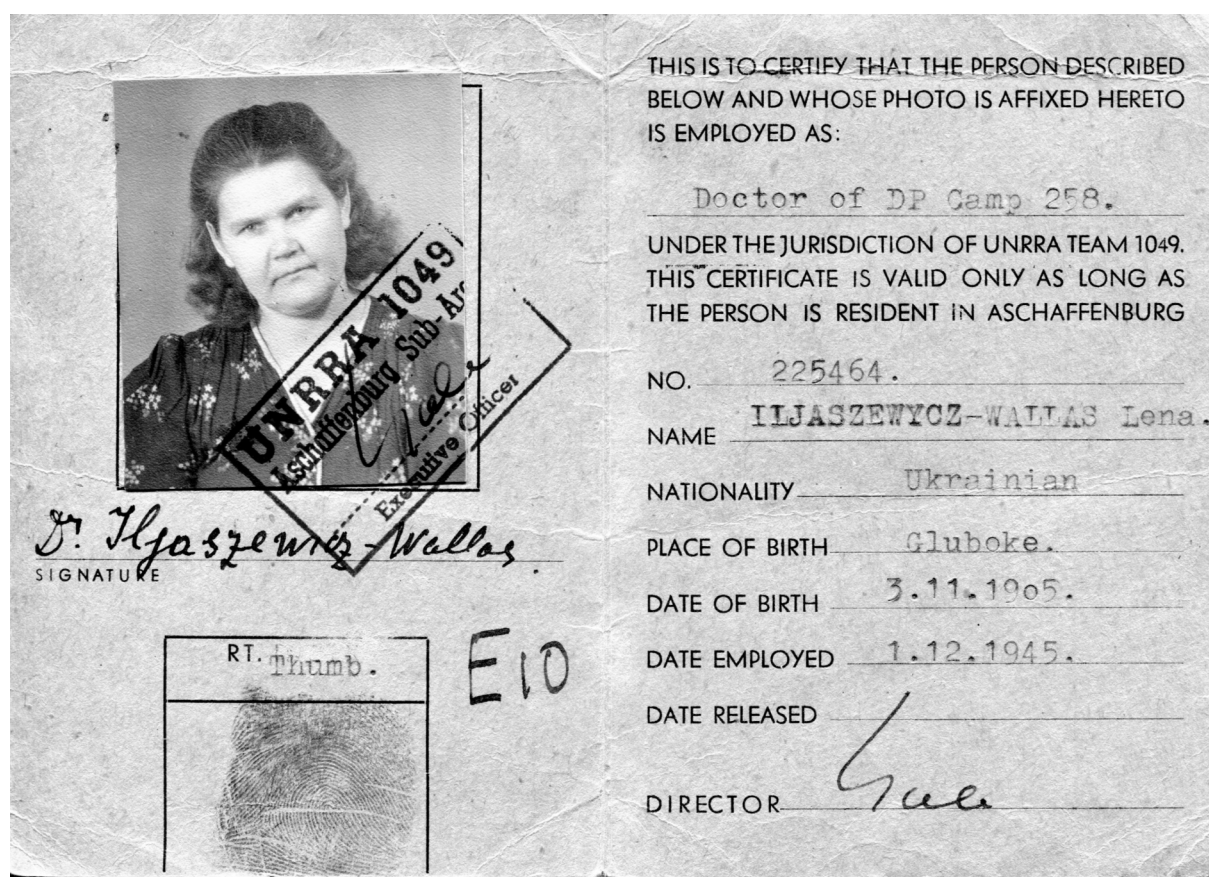 UNRRA 1049
Aschaffenburg Sub-Are
Executive Officer
Dr. Iljaszewicz-Wallas
SIGNATURE
RT. Thumb.
E10
THIS IS TO CERTIFY THAT THE PERSON DESCRIBED
BELOW AND WHOSE PHOTO IS AFFIXED HERETO
IS EMPLOYED AS:
Doctor of DP Camp 258.
UNDER THE JURISDICTION OF UNRRA TEAM 1049.
THIS CERTIFICATE IS VALID ONLY AS LONG AS
THE PERSON IS RESIDENT IN ASCHAFFENBURG
NO. 225464.
NAME ILJASZEWYCZ-WALLAS Lena.
NATIONALITY Ukrainian
PLACE OF BIRTH Gluboke.
DATE OF BIRTH 3.11.1905.
DATE EMPLOYED 1.12.1945.
DATE RELEASED
DIRECTOR